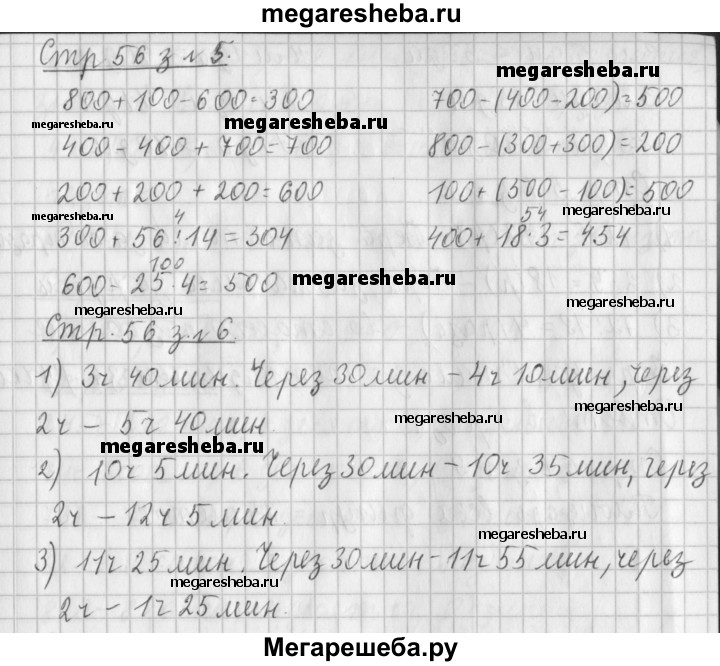 megaresheba.ru
Стр 56 з № 5.
megaresheba.ru
800+100-600=300 700-(400-200)=500
megaresheba.ru megaresheba.ru
400-400+700=700 800-(300+300)=200
200+200+200=600 100+(500-100)=500
megaresheba.ru megaresheba.ru
4 54
300+56:14=304 400+18·3=454
100
600-25·4=500 megaresheba.ru
megaresheba.ru megaresheba.ru
Стр. 56 з № 6.
1) 3ч 40мин. Через 30мин - 4ч 10мин, через
megaresheba.ru
2ч - 5ч 40мин. megaresheba.ru
megaresheba.ru
2) 10ч 5мин. Через 30мин - 10ч 35мин, через
2ч - 12ч 5мин.
megaresheba.ru
3) 11ч 25мин. Через 30мин - 11ч 55мин, через
megaresheba.ru megaresheba.ru
2ч - 1ч 25мин.
Мегарешеба.ру